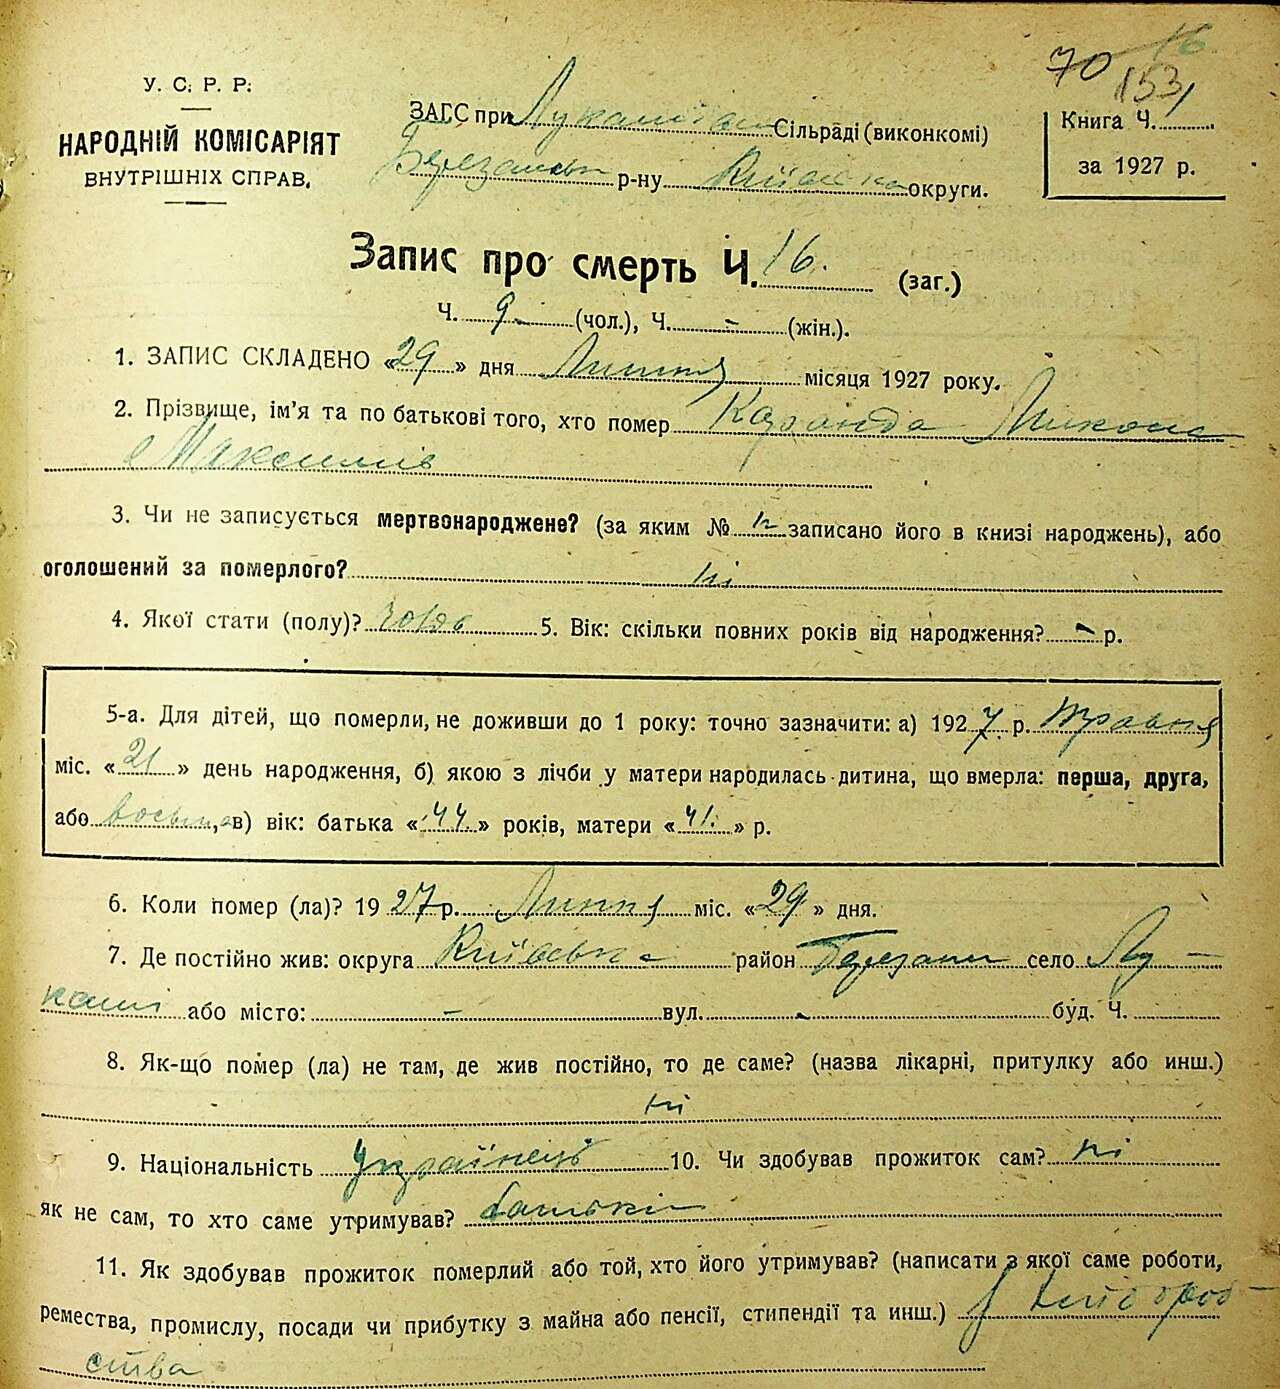 70 16
153
У. С. Р. Р.
НАРОДНІЙ КОМІСАРІЯТ
ВНУТРІШНІХ СПРАВ.
ЗАГС при Сільраді (виконкомі)
р-ну округи.
Книга Ч. 1
за 1927 р.
Запис про смерть Ч. 16. (заг.)
Ч. 9 (чол.), Ч. - (жін.).
1. ЗАПИС СКЛАДЕНО «29» дня Липня місяця 1927 року.
2. Прізвище, ім'я та по батькові того, хто помер Микола
Максимів
3. Чи не записується мертвонароджене? (за яким № записано його в книзі народжень), або
оголошений за померлого? ні
4. Якої стати (полу)? 5. Вік: скільки повних років від народження? - р.
5-а. Для дітей, що померли, не доживши до 1 року: точно зазначити: а) 1927 р. Травня
міс. «21» день народження, б) якою з лічби у матери народилась дитина, що вмерла: перша, друга,
або восьма, в) вік: батька «44» років, матери «41» р.
6. Коли помер (ла)? 1927 р. Липня міс. «29» дня.
7. Де постійно жив: округа Київська район Березань село Лу-
каші або місто: - вул. - буд. Ч.
8. Як-що помер (ла) не там, де жив постійно, то де саме? (назва лікарні, притулку або инш.)
ні
9. Національність Українець 10. Чи здобував прожиток сам? ні
як не сам, то хто саме утримував? батьки
11. Як здобував прожиток померлий або той, хто його утримував? (написати з якої саме роботи,
ремества, промислу, посади чи прибутку з майна або пенсії, стипендії та инш.) з хлібороб-
ства